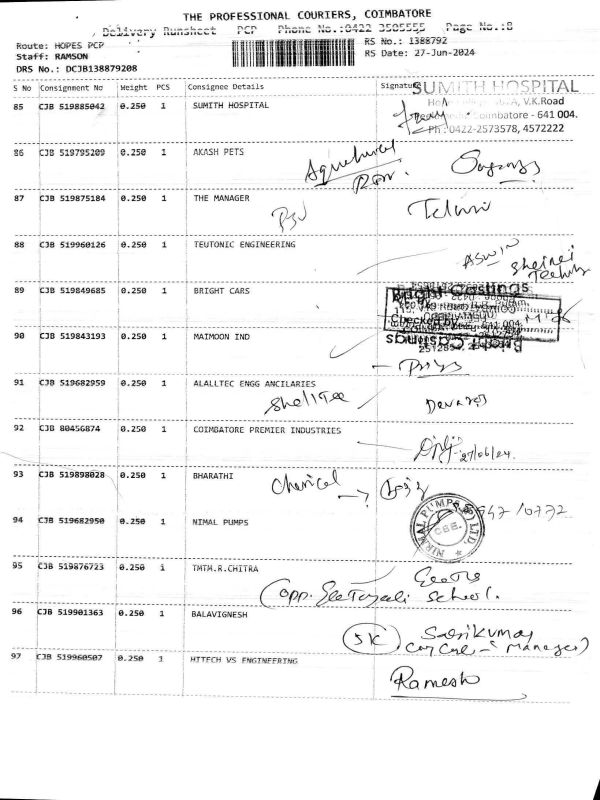 THE PROFESSIONAL COURIERS, COIMBATORE
Delivery Runsheet PCP Phone No.:0422 3505555 Page No.:8
Route: HOPES PCP
RS No.: 1388792
Staff: RAMSON
RS Date: 27-Jun-2024
DRS No.: DCJB138879208
S No Consignment No Weight PCS Consignee Details Signature
SUMITH HOSPITAL
85 CJB 519885042 0.250 1 SUMITH HOSPITAL
V.K.Road
Coimbatore - 641 004.
Ph : 0422-2573578, 4572222
86 CJB 519795209 0.250 1 AKASH PETS
87 CJB 519875184 0.250 1 THE MANAGER
88 CJB 519960126 0.250 1 TEUTONIC ENGINEERING
ASWIN
89 CJB 519849685 0.250 1 BRIGHT CARS
Bright Castings
Checked by
Bright Castings
90 CJB 519843193 0.250 1 MAIMOON IND
Priya
91 CJB 519682959 0.250 1 ALALLTEC ENGG ANCILARIES
92 CJB 80456874 0.250 1 COIMBATORE PREMIER INDUSTRIES
27/06/24.
93 CJB 519898028 0.250 1 BHARATHI
Chemical
94 CJB 519682950 0.250 1 NIMAL PUMPS
NIRMAL PUMPS (P) LTD.
CBE.
95 CJB 519876723 0.250 1 TMTM.R.CHITRA
(opp. School.
96 CJB 519901363 0.250 1 BALAVIGNESH
SK
Sasikumar
(Manager)
97 CJB 519960507 0.250 1 HITECH VS ENGINEERING
Ramesh